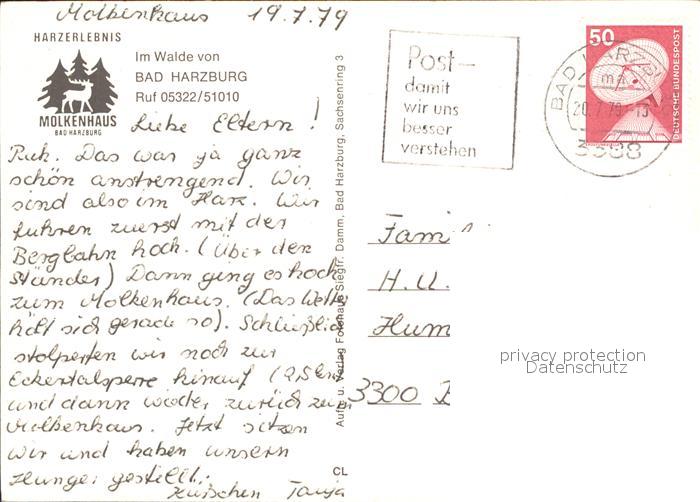 Molkenhaus 19.7.79
HARZERLEBNIS
MOLKENHAUS
BAD HARZBURG
Im Walde von
BAD HARZBURG
Ruf 05322/51010
Liebe Eltern!
Puh. Das war ja ganz
schön anstrengend. Wir
sind also im Harz. Wir
fuhren zuerst mit der
Bergbahn hoch. (Über den
Ständer) Dann ging es hoch
zum Molkenhaus. (Das Wetter
hält sich gerade so). Schließlich
stolperten wir noch zur
Eckertalsperre hinauf (2,5 km)
und dann wieder zurück zum
Molkenhaus. Jetzt sitzen
wir und haben unsern
Hunger gestillt.
Küßchen Tanja
Aufn. u. Verlag Fotohaus Siegfr. Damm, Bad Harzburg, Sachsenring 3
CL
Post—
damit
wir uns
besser
verstehen
BAD HARZB
20.7.79-15
3388
50
DEUTSCHE BUNDESPOST
Fami
H.U.
Hum
3300
privacy protection
Datenschutz